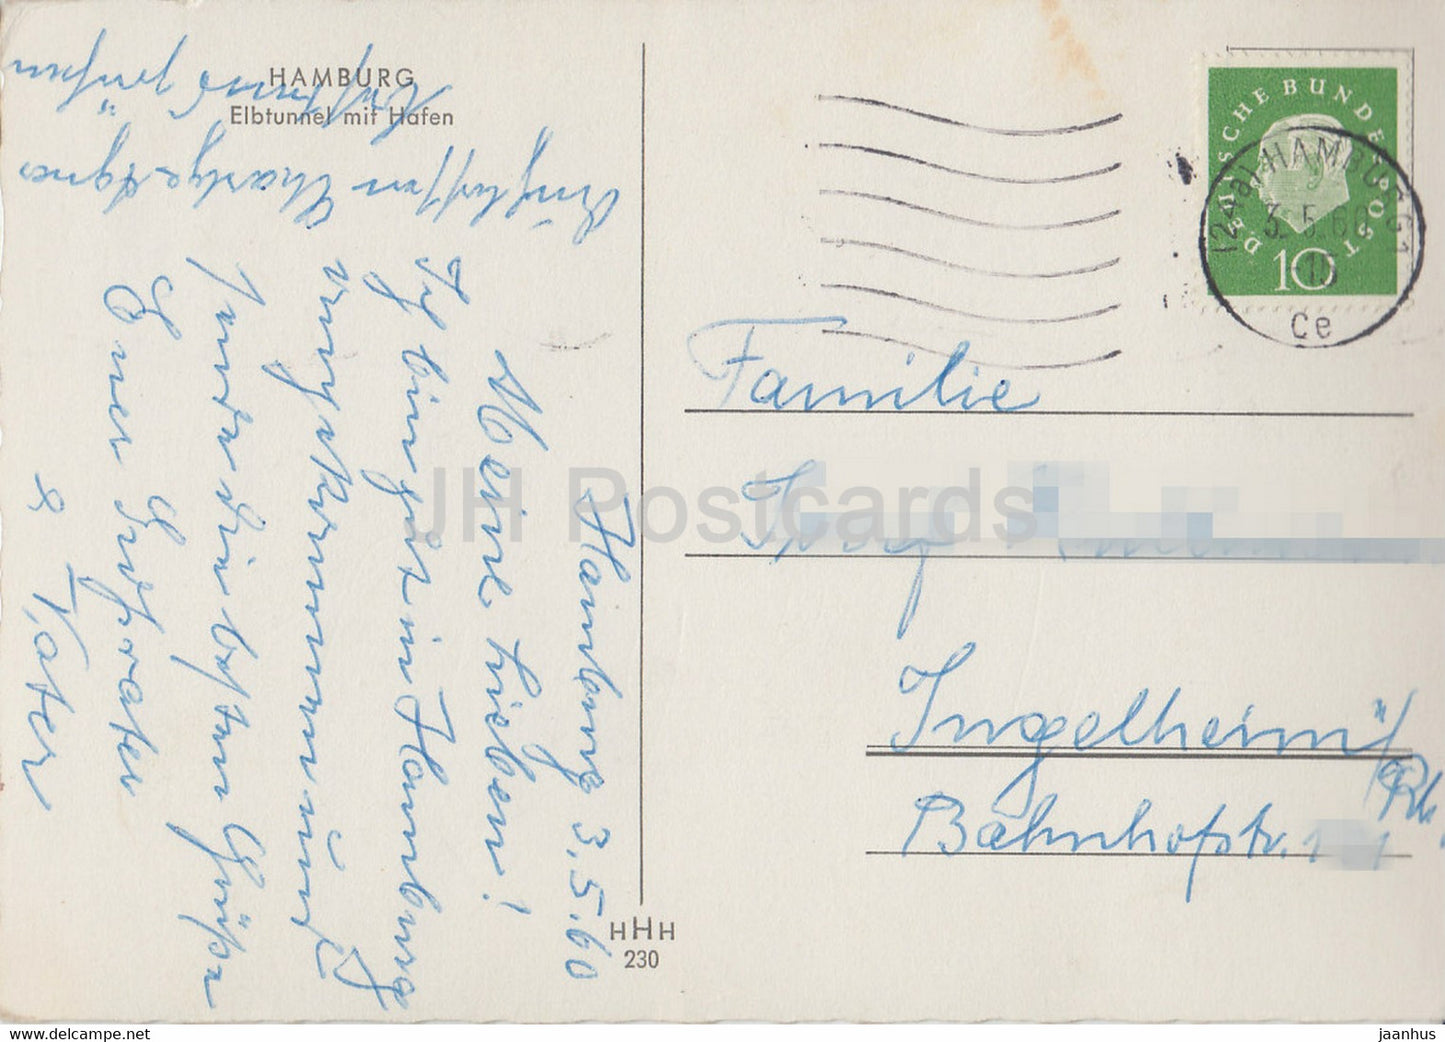 HAMBURG
Elbtunnel mit Hafen
Hamburg 3.5.60
Meine Lieben!
Ich bin gut in Hamburg
angekommen und
sende die besten Grüße
Euer Großvater
& Vater
DEUTSCHE BUNDESPOST
10
(24a) HAMBURG 1
3.5.60
15
Ce
Familie
Josef
Ingelheim a/Rh.
Bahnhofstr.
HHH
230
JH Postcards
www.jhpostcard.net
jaanhus